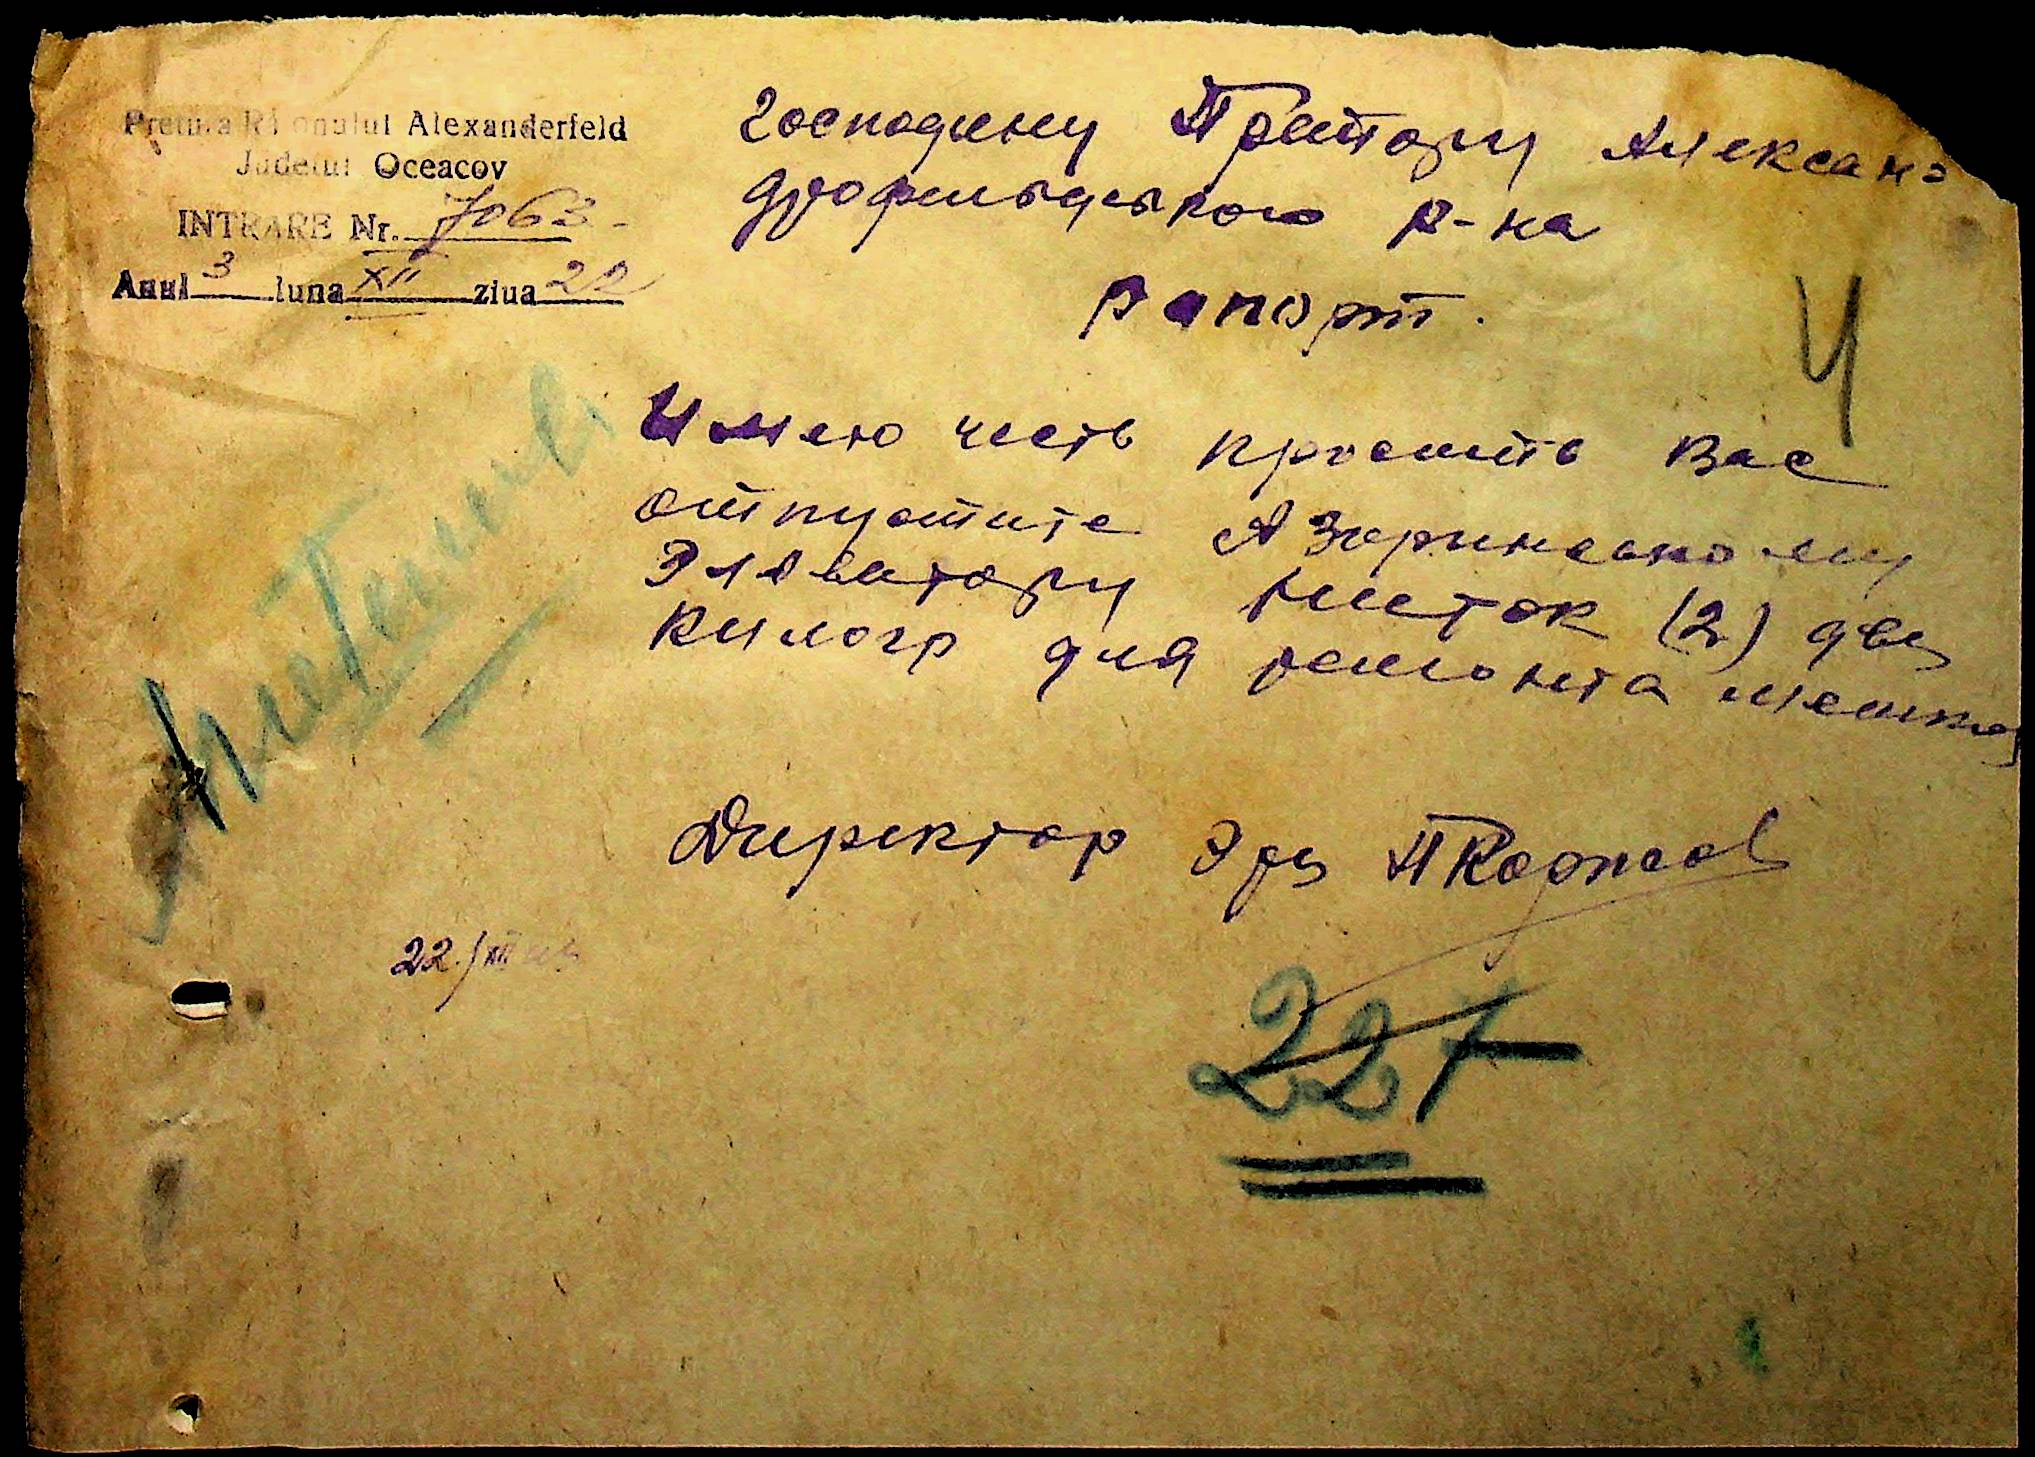 Pretura Raionului Alexanderfeld
Judetul Oceacov
INTRARE Nr. 7063
Anul 3 luna XII ziua 22
Господину Претору Алексан=
дрофельдского р-на
Рапорт.
Ч
Имею честь просить Вас
отпустите Азаринскому
Элеватору ниток (2) два
килогр для ремонта мешков
Директор П Коржов
22/XII
227